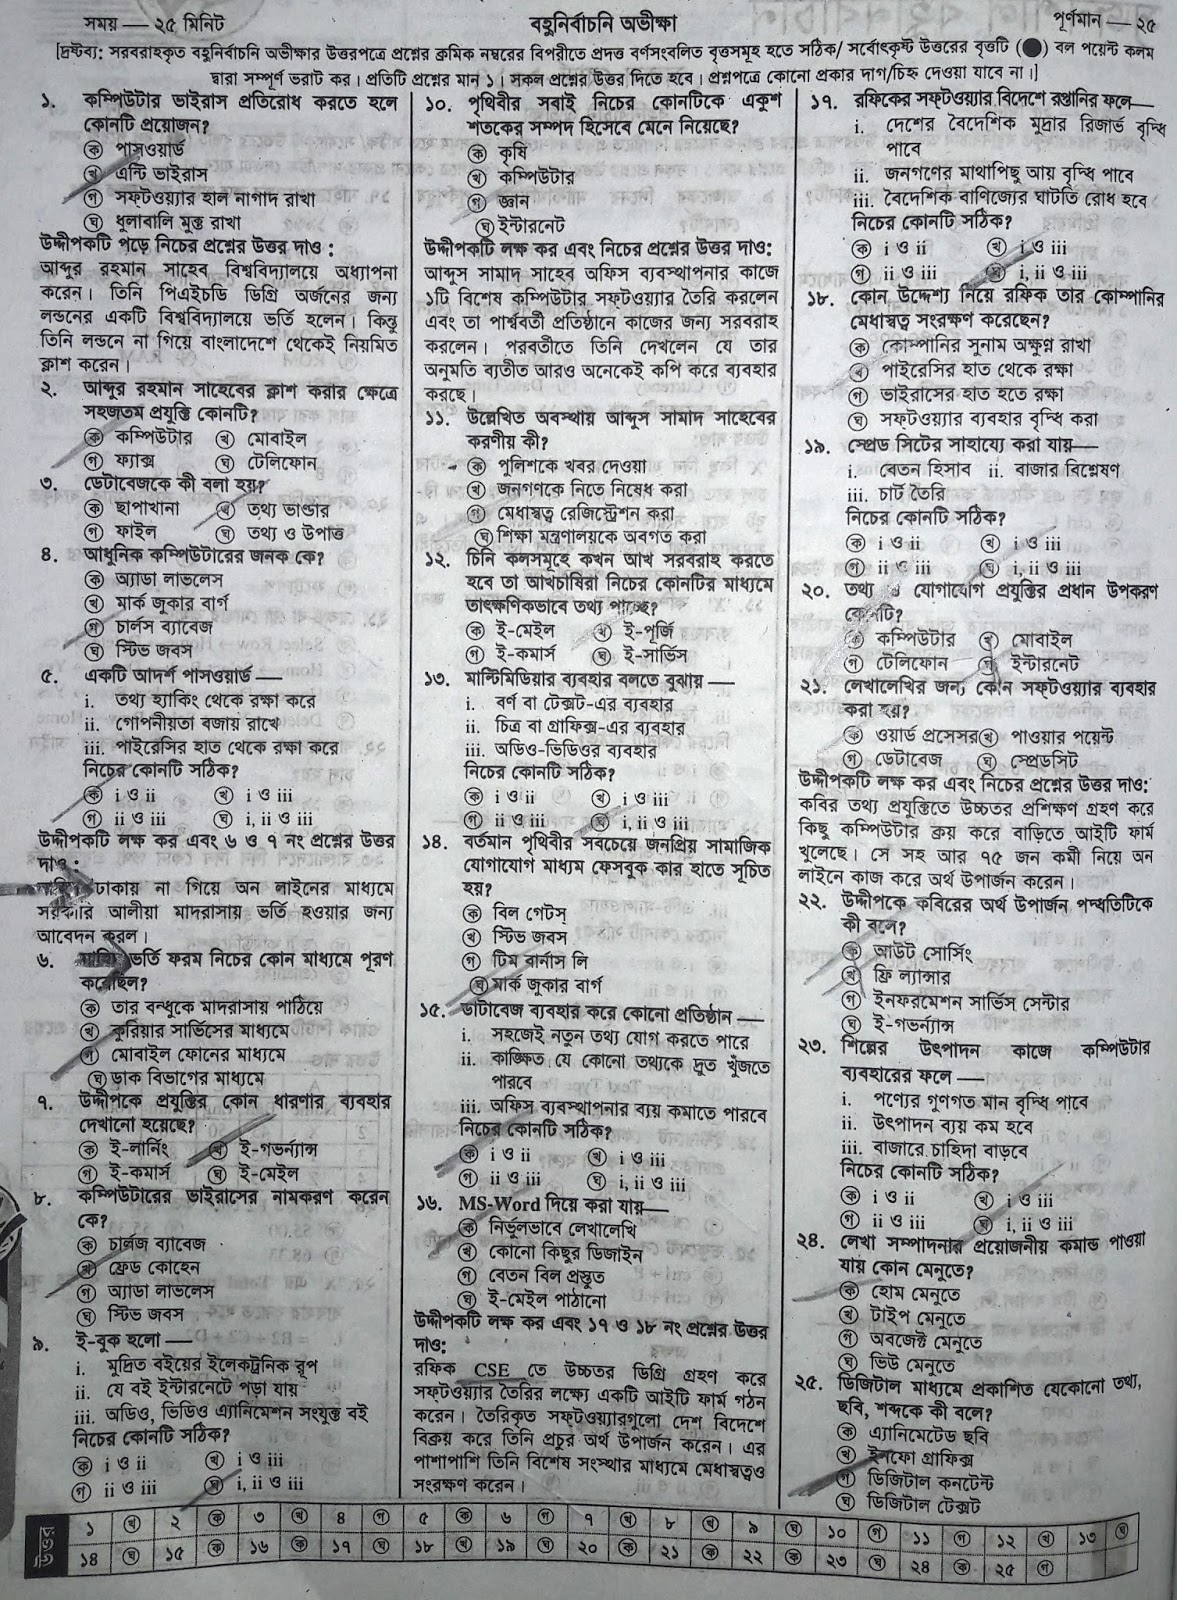 সময় — ২৫ মিনিট
বহুনির্বাচনি অভীক্ষা
পূর্ণমান — ২৫
[দ্রষ্টব্য: সরবরাহকৃত বহুনির্বাচনি অভীক্ষার উত্তরপত্রে প্রশ্নের ক্রমিক নম্বরের বিপরীতে প্রদত্ত বর্ণসংবলিত বৃত্তসমূহ হতে সঠিক/ সর্বোৎকৃষ্ট উত্তরের বৃত্তটি (●) বল পয়েন্ট কলম
দ্বারা সম্পূর্ণ ভরাট কর। প্রতিটি প্রশ্নের মান ১। সকল প্রশ্নের উত্তর দিতে হবে। প্রশ্নপত্রে কোনো প্রকার দাগ/চিহ্ন দেওয়া যাবে না।]
১. কম্পিউটার ভাইরাস প্রতিরোধ করতে হলে
কোনটি প্রয়োজন?
ক পাসওয়ার্ড
খ এন্টি ভাইরাস
গ সফ্‌টওয়্যার হাল নাগাদ রাখা
ঘ ধুলাবালি মুক্ত রাখা
উদ্দীপকটি পড়ে নিচের প্রশ্নের উত্তর দাও :
আব্দুর রহমান সাহেব বিশ্ববিদ্যালয়ে অধ্যাপনা
করেন। তিনি পিএইচডি ডিগ্রি অর্জনের জন্য
লন্ডনের একটি বিশ্ববিদ্যালয়ে ভর্তি হলেন। কিন্তু
তিনি লন্ডনে না গিয়ে বাংলাদেশে থেকেই নিয়মিত
ক্লাশ করেন।
২. আব্দুর রহমান সাহেবের ক্লাশ করার ক্ষেত্রে
সহজতম প্রযুক্তি কোনটি?
ক কম্পিউটার খ মোবাইল
গ ফ্যাক্স ঘ টেলিফোন
৩. ডেটাবেজকে কী বলা হয়?
ক ছাপাখানা খ তথ্য ভাণ্ডার
গ ফাইল ঘ তথ্য ও উপাত্ত
৪. আধুনিক কম্পিউটারের জনক কে?
ক অ্যাডা লাভলেস
খ মার্ক জুকার বার্গ
গ চার্লস ব্যাবেজ
ঘ স্টিভ জবস
৫. একটি আদর্শ পাসওয়ার্ড —
i. তথ্য হ্যাকিং থেকে রক্ষা করে
ii. গোপনীয়তা বজায় রাখে
iii. পাইরেসির হাত থেকে রক্ষা করে
নিচের কোনটি সঠিক?
ক i ও ii খ i ও iii
গ ii ও iii ঘ i, ii ও iii
উদ্দীপকটি লক্ষ কর এবং ৬ ও ৭ নং প্রশ্নের উত্তর
দাও :
ঢাকায় না গিয়ে অন লাইনের মাধ্যমে
সরকারি আলীয়া মাদরাসায় ভর্তি হওয়ার জন্য
আবেদন করল।
৬. ভর্তি ফরম নিচের কোন মাধ্যমে পূরণ
করেছিল?
ক তার বন্ধুকে মাদরাসায় পাঠিয়ে
খ কুরিয়ার সার্ভিসের মাধ্যমে
গ মোবাইল ফোনের মাধ্যমে
ঘ ডাক বিভাগের মাধ্যমে
৭. উদ্দীপকে প্রযুক্তির কোন ধারণার ব্যবহার
দেখানো হয়েছে?
ক ই-লার্নিং খ ই-গভর্ন্যান্স
গ ই-কমার্স ঘ ই-মেইল
৮. কম্পিউটারের ভাইরাসের নামকরণ করেন
কে?
ক চার্লজ ব্যাবেজ
খ ফ্রেড কোহেন
গ অ্যাডা লাভলেস
ঘ স্টিভ জবস
৯. ই-বুক হলো —
i. মুদ্রিত বইয়ের ইলেকট্রনিক রূপ
ii. যে বই ইন্টারনেটে পড়া যায়
iii. অডিও, ভিডিও এ্যানিমেশন সংযুক্ত বই
নিচের কোনটি সঠিক?
ক i ও ii খ i ও iii
গ ii ও iii ঘ i, ii ও iii
১০. পৃথিবীর সবাই নিচের কোনটিকে একুশ
শতকের সম্পদ হিসেবে মেনে নিয়েছে?
ক কৃষি
খ কম্পিউটার
গ জ্ঞান
ঘ ইন্টারনেট
উদ্দীপকটি লক্ষ কর এবং নিচের প্রশ্নের উত্তর দাও:
আব্দুস সামাদ সাহেব অফিস ব্যবস্থাপনার কাজে
১টি বিশেষ কম্পিউটার সফ্‌টওয়্যার তৈরি করলেন
এবং তা পার্শ্ববর্তী প্রতিষ্ঠানে কাজের জন্য সরবরাহ
করলেন। পরবর্তীতে তিনি দেখলেন যে তার
অনুমতি ব্যতীত আরও অনেকেই কপি করে ব্যবহার
করছে।
১১. উল্লেখিত অবস্থায় আব্দুস সামাদ সাহেবের
করণীয় কী?
ক পুলিশকে খবর দেওয়া
খ জনগণকে নিতে নিষেধ করা
গ মেধাস্বত্ব রেজিস্ট্রেশন করা
ঘ শিক্ষা মন্ত্রণালয়কে অবগত করা
১২. চিনি কলসমূহে কখন আখ সরবরাহ করতে
হবে তা আখচাষিরা নিচের কোনটির মাধ্যমে
তাৎক্ষণিকভাবে তথ্য পাচ্ছে?
ক ই-মেইল খ ই-পূর্জি
গ ই-কমার্স ঘ ই-সার্ভিস
১৩. মাল্টিমিডিয়ার ব্যবহার বলতে বুঝায় —
i. বর্ণ বা টেক্সট-এর ব্যবহার
ii. চিত্র বা গ্রাফিক্স-এর ব্যবহার
iii. অডিও-ভিডিওর ব্যবহার
নিচের কোনটি সঠিক?
ক i ও ii খ i ও iii
গ ii ও iii ঘ i, ii ও iii
১৪. বর্তমান পৃথিবীর সবচেয়ে জনপ্রিয় সামাজিক
যোগাযোগ মাধ্যম ফেসবুক কার হাতে সূচিত
হয়?
ক বিল গেটস্
খ স্টিভ জবস
গ টিম বার্নাস লি
ঘ মার্ক জুকার বার্গ
১৫. ডাটাবেজ ব্যবহার করে কোনো প্রতিষ্ঠান —
i. সহজেই নতুন তথ্য যোগ করতে পারে
ii. কাঙ্ক্ষিত যে কোনো তথ্যকে দ্রুত খুঁজতে
পারবে
iii. অফিস ব্যবস্থাপনার ব্যয় কমাতে পারবে
নিচের কোনটি সঠিক?
ক i ও ii খ i ও iii
গ ii ও iii ঘ i, ii ও iii
১৬. MS-Word দিয়ে করা যায়—
ক নির্ভুলভাবে লেখালেখি
খ কোনো কিছুর ডিজাইন
গ বেতন বিল প্রস্তুত
ঘ ই-মেইল পাঠানো
উদ্দীপকটি লক্ষ কর এবং ১৭ ও ১৮ নং প্রশ্নের উত্তর
দাও:
রফিক CSE তে উচ্চতর ডিগ্রি গ্রহণ করে
সফ্‌টওয়্যার তৈরির লক্ষ্যে একটি আইটি ফার্ম গঠন
করেন। তৈরিকৃত সফ্‌টওয়্যারগুলো দেশ বিদেশে
বিক্রয় করে তিনি প্রচুর অর্থ উপার্জন করেন। এর
পাশাপাশি তিনি বিশেষ সংস্থার মাধ্যমে মেধাস্বত্বও
সংরক্ষণ করেন।
১৭. রফিকের সফ্‌টওয়্যার বিদেশে রপ্তানির ফলে—
i. দেশের বৈদেশিক মুদ্রার রিজার্ভ বৃদ্ধি
পাবে
ii. জনগণের মাথাপিছু আয় বৃদ্ধি পাবে
iii. বৈদেশিক বাণিজ্যের ঘাটতি রোধ হবে
নিচের কোনটি সঠিক?
ক i ও ii খ i ও iii
গ ii ও iii ঘ i, ii ও iii
১৮. কোন উদ্দেশ্য নিয়ে রফিক তার কোম্পানির
মেধাস্বত্ব সংরক্ষণ করেছেন?
ক কোম্পানির সুনাম অক্ষুণ্ন রাখা
খ পাইরেসির হাত থেকে রক্ষা
গ ভাইরাসের হাত হতে রক্ষা
ঘ সফ্‌টওয়্যার ব্যবহার বৃদ্ধি করা
১৯. স্প্রেড সিটের সাহায্যে করা যায়—
i. বেতন হিসাব ii. বাজার বিশ্লেষণ
iii. চার্ট তৈরি
নিচের কোনটি সঠিক?
ক i ও ii খ i ও iii
গ ii ও iii ঘ i, ii ও iii
২০. তথ্য ও যোগাযোগ প্রযুক্তির প্রধান উপকরণ
কোনটি?
ক কম্পিউটার খ মোবাইল
গ টেলিফোন ঘ ইন্টারনেট
২১. লেখালেখির জন্য কোন সফ্‌টওয়্যার ব্যবহার
করা হয়?
ক ওয়ার্ড প্রসেসর খ পাওয়ার পয়েন্ট
গ ডেটাবেজ ঘ স্প্রেডসিট
উদ্দীপকটি লক্ষ কর এবং নিচের প্রশ্নের উত্তর দাও:
কবির তথ্য প্রযুক্তিতে উচ্চতর প্রশিক্ষণ গ্রহণ করে
কিছু কম্পিউটার ক্রয় করে বাড়িতে আইটি ফার্ম
খুলেছে। সে সহ আর ৭৫ জন কর্মী নিয়ে অন
লাইনে কাজ করে অর্থ উপার্জন করেন।
২২. উদ্দীপকে কবিরের অর্থ উপার্জন পদ্ধতিটিকে
কী বলে?
ক আউট সোর্সিং
খ ফ্রি ল্যান্সার
গ ইনফরমেশন সার্ভিস সেন্টার
ঘ ই-গভর্ন্যান্স
২৩. শিল্পের উৎপাদন কাজে কম্পিউটার
ব্যবহারের ফলে —
i. পণ্যের গুণগত মান বৃদ্ধি পাবে
ii. উৎপাদন ব্যয় কম হবে
iii. বাজারে চাহিদা বাড়বে
নিচের কোনটি সঠিক?
ক i ও ii খ i ও iii
গ ii ও iii ঘ i, ii ও iii
২৪. লেখা সম্পাদনার প্রয়োজনীয় কমান্ড পাওয়া
যায় কোন মেনুতে?
ক হোম মেনুতে
খ টাইপ মেনুতে
গ অবজেক্ট মেনুতে
ঘ ভিউ মেনুতে
২৫. ডিজিটাল মাধ্যমে প্রকাশিত যেকোনো তথ্য,
ছবি, শব্দকে কী বলে?
ক এ্যানিমেটেড ছবি
খ ইনফো গ্রাফিক্স
গ ডিজিটাল কনটেন্ট
ঘ ডিজিটাল টেক্সট
উত্তর ১ খ ২ ক ৩ খ ৪ গ ৫ ক ৬ গ ৭ খ ৮ খ ৯ ঘ ১০ গ ১১ গ ১২ খ ১৩ ঘ
১৪ ঘ ১৫ ক ১৬ ক ১৭ ঘ ১৮ খ ১৯ ঘ ২০ ক ২১ ক ২২ ক ২৩ ঘ ২৪ ক ২৫ গ